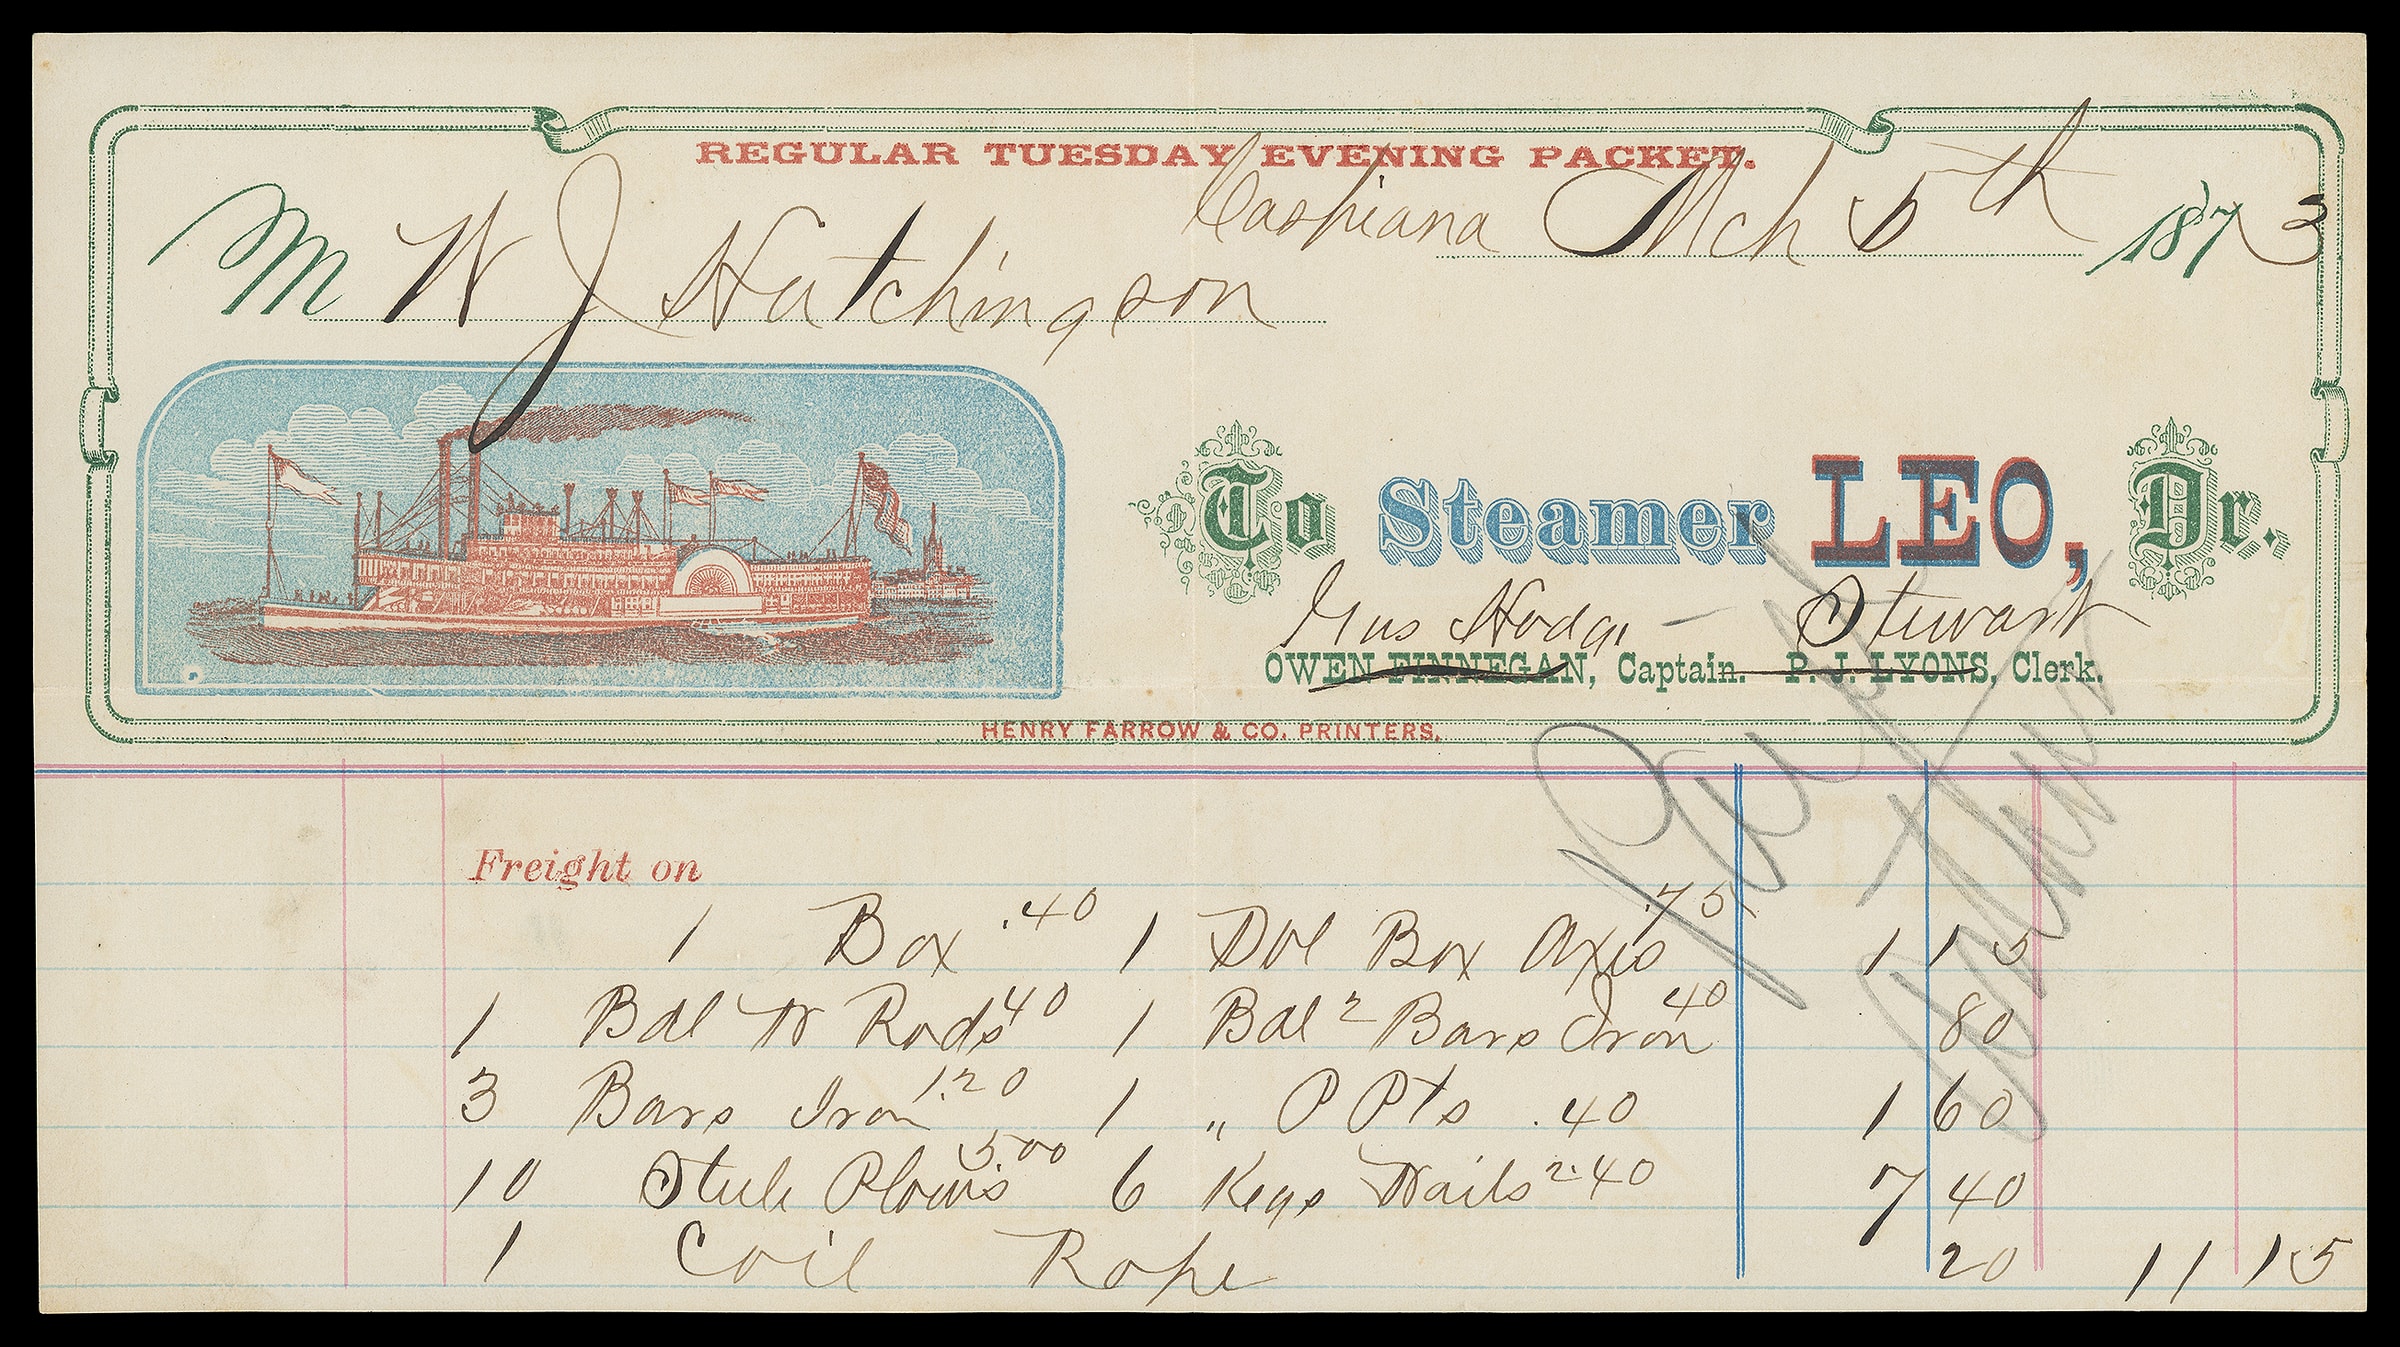 REGULAR TUESDAY EVENING PACKET.
Caspiana Mch 5th 1873
M W J Hutchingson
To Steamer LEO, Dr.
Gus Hodge - Stewart
OWEN FINNEGAN, Captain. P. J. LYONS, Clerk.
HENRY FARROW & CO. PRINTERS.
Paid
Stewart
Freight on
1 Box .40 1 Dbl Box Axis .75 1 15
1 Bdl W Rods 40 1 Bdl 2 Bars Iron 40 80
3 Bars Iron 1.20 1 " P Pts .40 1 60
10 Steele Plows 5.00 6 Kegs Nails 2.40 7 40
1 Coil Rope 20 11 15